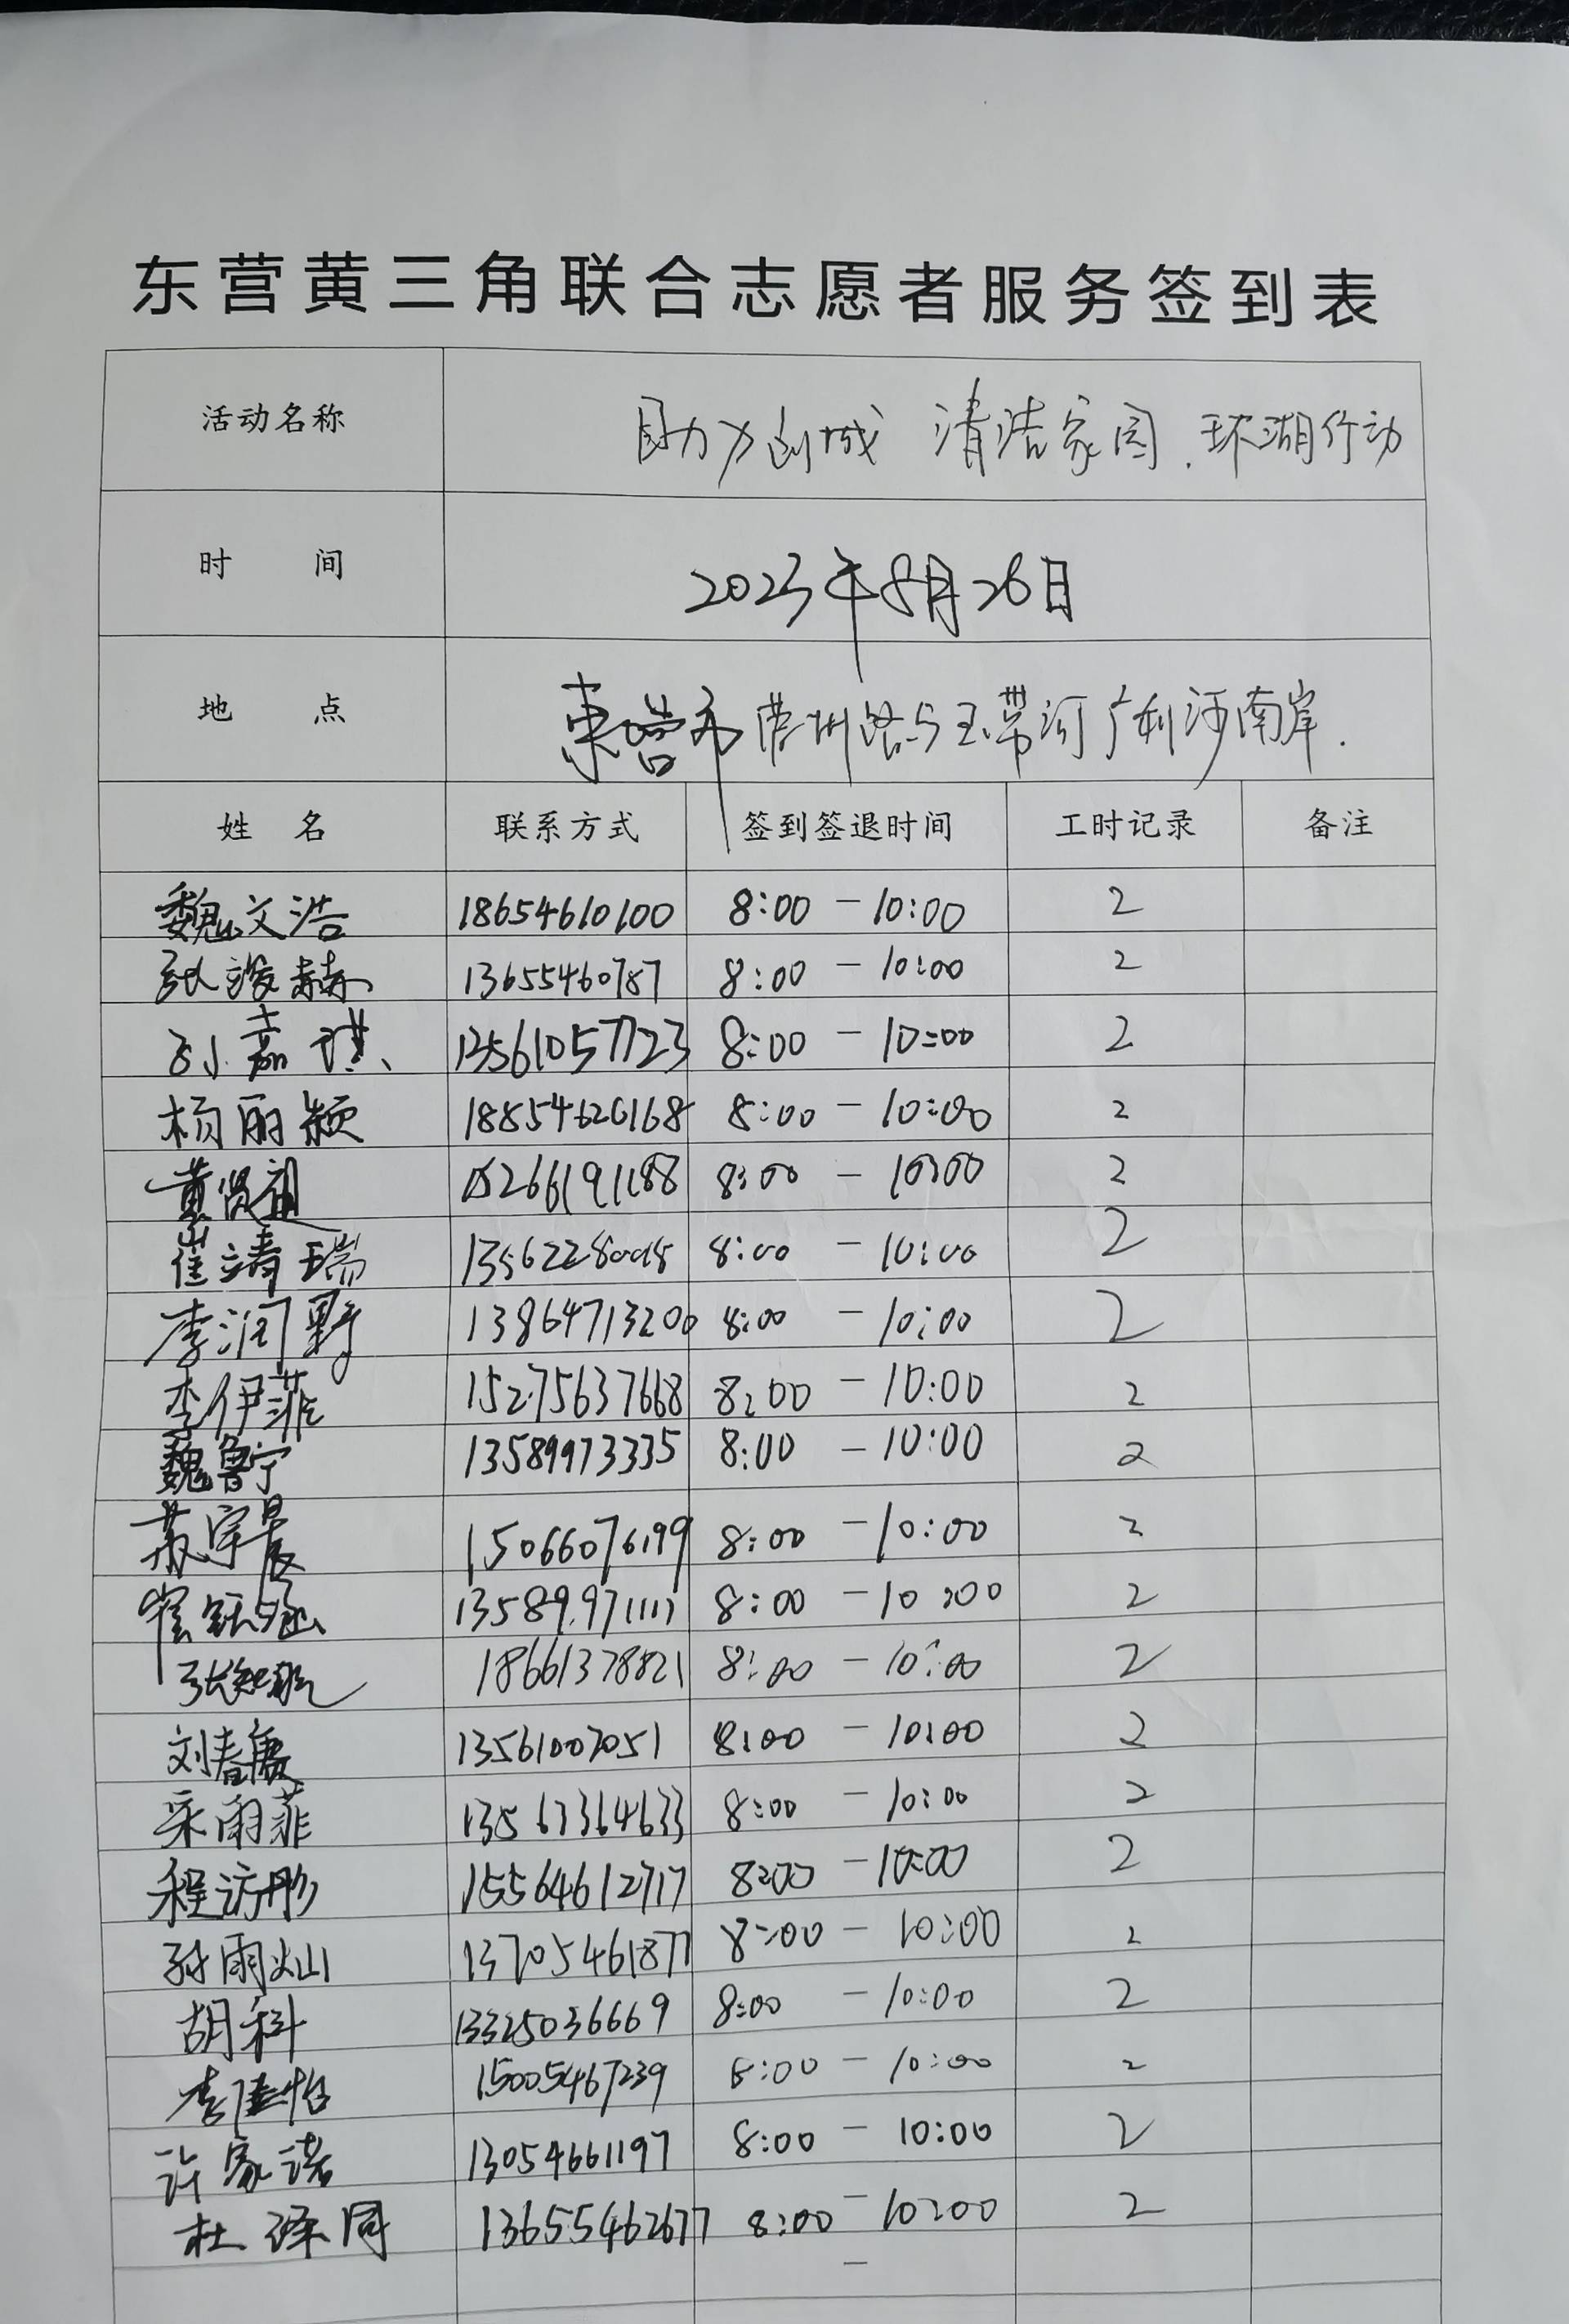 东营黄三角联合志愿者服务签到表
活动名称 助力创城 清洁家园、环湖行动
时 间 2023年8月26日
地 点 東營市 路与玉带河广利河南岸.
姓 名 联系方式 签到签退时间 工时记录 备注
魏文浩 18654610100 8:00 - 10:00 2
张浚赫 13655460787 8:00 - 10:00 2
孙嘉琪 13561057723 8:00 - 10:00 2
杨丽颖 18854626168 8:00 - 10:00 2
黄 15266191188 8:00 - 10:00 2
崔涛瑞 8:00 - 10:00 2
李润野 13864713200 8:00 - 10:00 2
李伊菲 15275637668 8:00 - 10:00 2
魏鲁宁 13589973335 8:00 - 10:00 2
苏宇晨 15066076199 8:00 - 10:00 2
崔钰涵 8:00 - 10:00 2
张 18661378821 8:00 - 10:00 2
刘春 13561007051 8:00 - 10:00 2
采雨菲 13561364633 8:00 - 10:00 2
程访彤 15564612717 8:00 - 10:00 2
孙雨灿 13705461877 8:00 - 10:00 2
胡科 13325036669 8:00 - 10:00 2
李佳怡 15005467239 8:00 - 10:00 2
许家诺 13054661197 8:00 - 10:00 2
杜泽同 13655462677 8:00 - 10:00 2
-